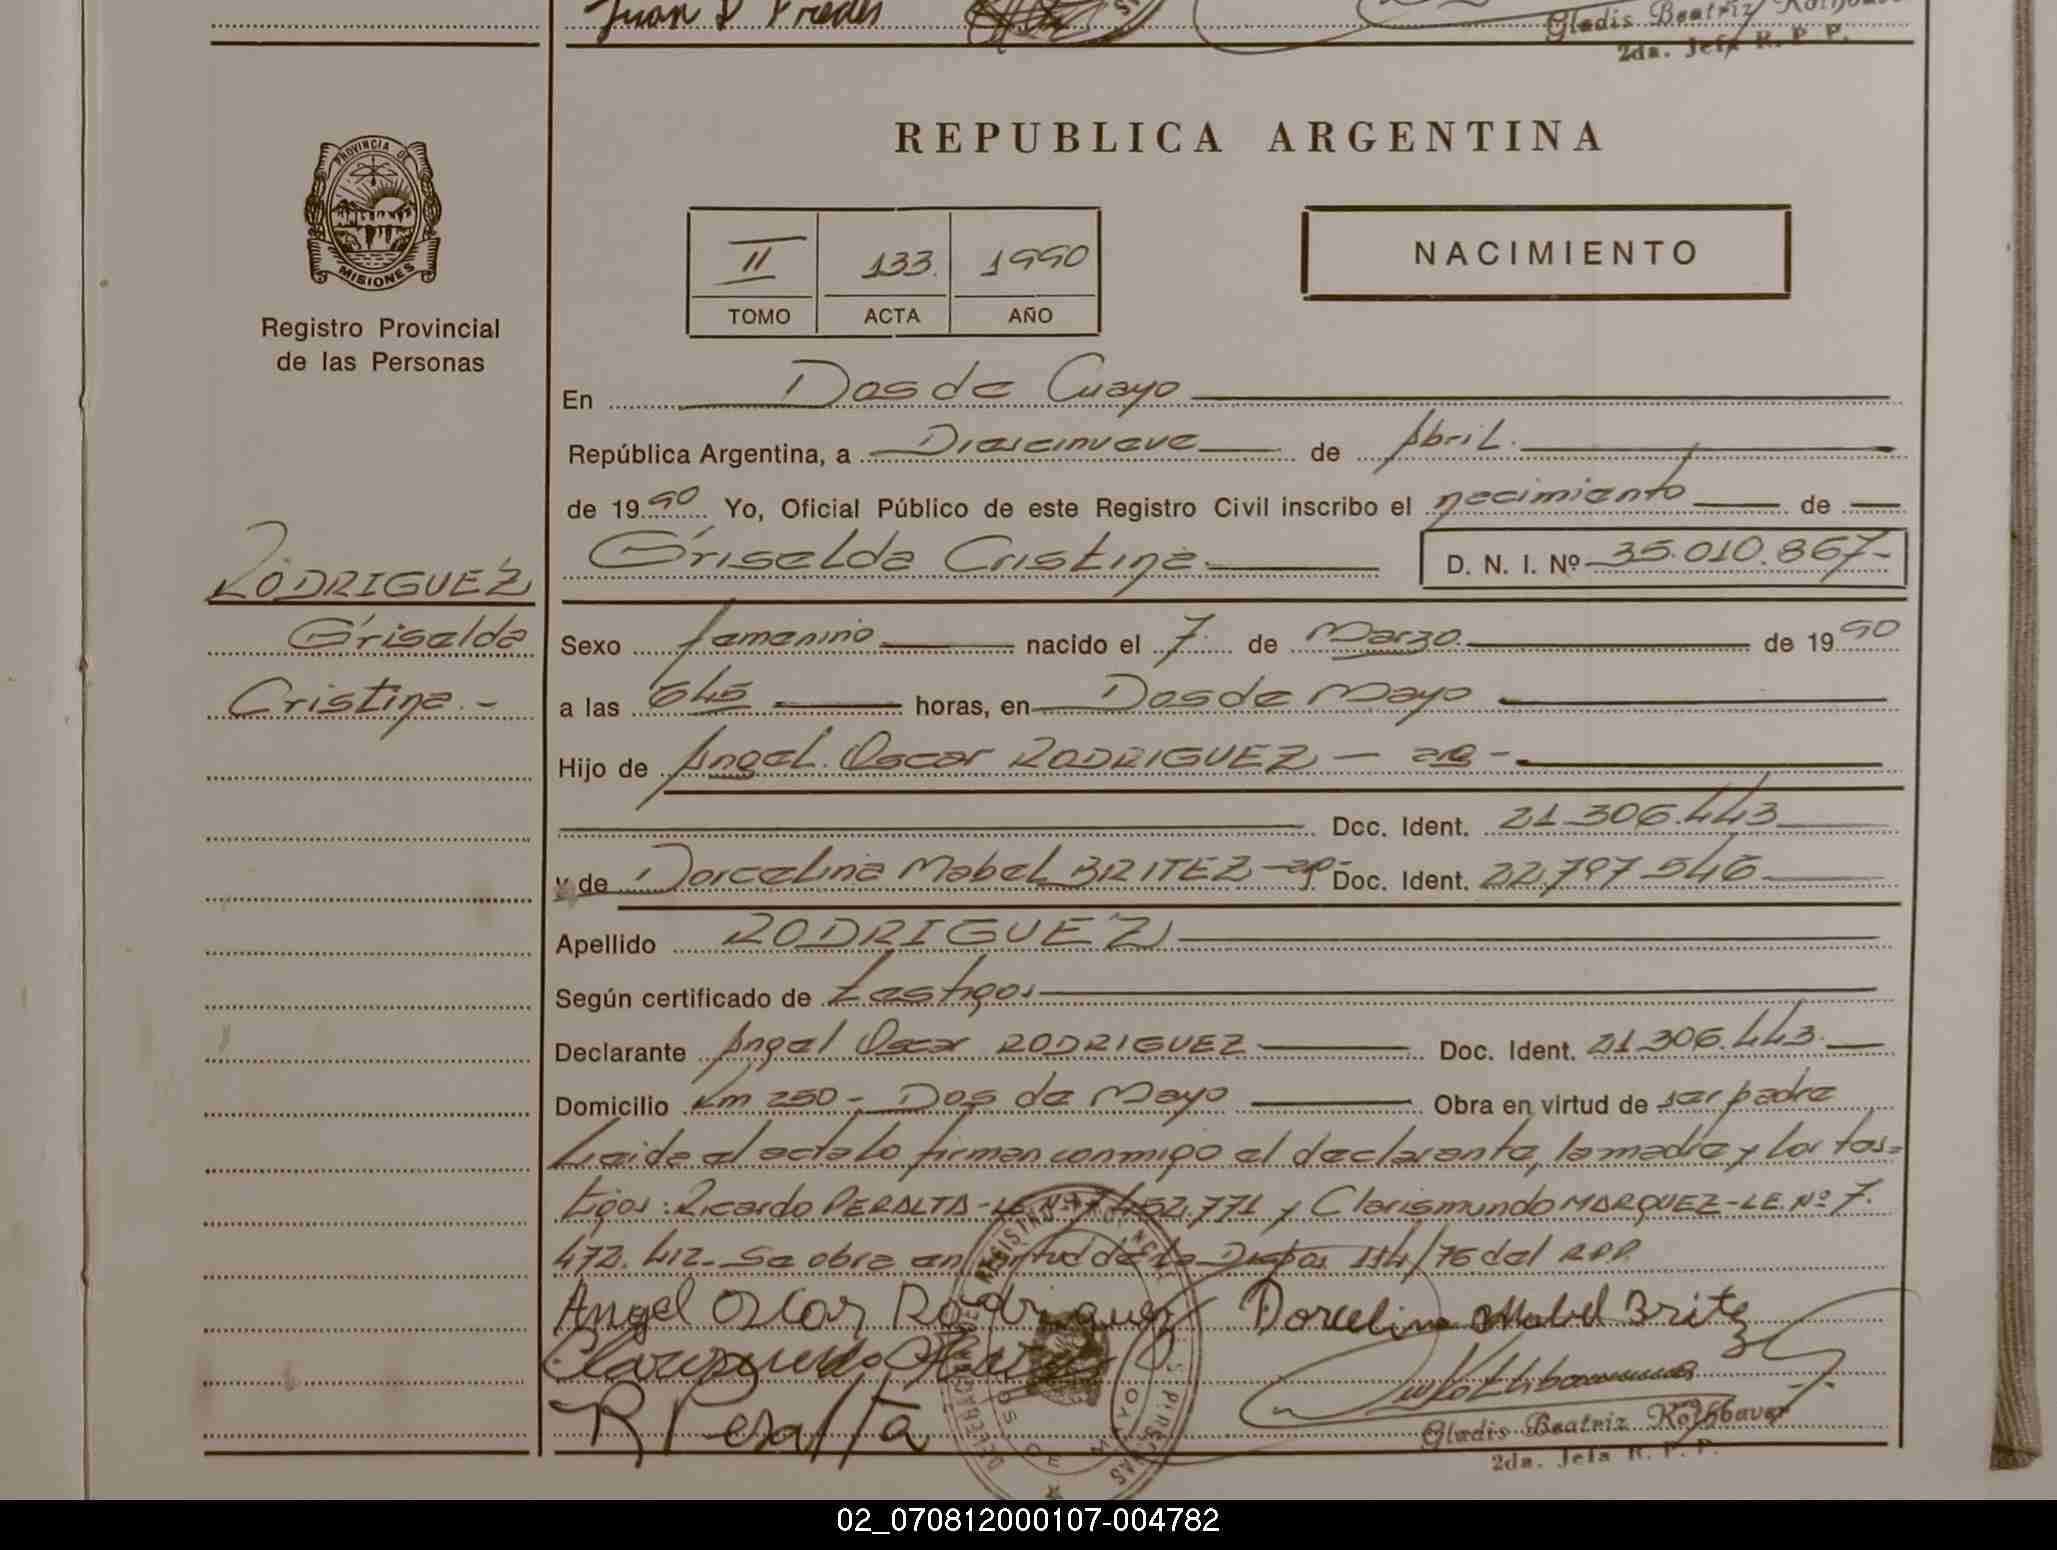 Juan
Gladis Beatriz Rothbauer
2da. Jefa R. P. P.
PROVINCIA DE
MISIONES
Registro Provincial
de las Personas
REPUBLICA ARGENTINA
II 133. 1990
TOMO ACTA AÑO
NACIMIENTO
En Dos de Mayo
República Argentina, a Diecinueve de Abril.
de 1990 Yo, Oficial Público de este Registro Civil inscribo el nacimiento de
Griselda Cristina D. N. I. Nº 35.010.867-
RODRIGUEZ
Griselda
Cristina.-
Sexo femenino nacido el 7. de Marzo. de 1990
a las 645 horas, en Dos de Mayo
Hijo de Angel Oscar RODRIGUEZ - ar -
Doc. Ident. 21.306.443
y de Dorcelina Mabel BRITEZ - Doc. Ident. 22.797.546
Apellido RODRIGUEZ
Según certificado de testigos
Declarante Angel Oscar RODRIGUEZ Doc. Ident. 21.306.443.
Domicilio Km 250 - Dos de Mayo Obra en virtud de ser padre
Leida el acta lo firman conmigo el declarante, la madre y los tes=
tigos: Ricardo PERALTA - LE Nº 7.452.771 y Clarismundo MARQUEZ - LE. Nº 7.
472.412. Se obra en virtud de la Dispos 114/76 del RPP.
Angel Oscar Rodriguez Dorcelina Mabel Britez
R Peralta
Gladis Beatriz Rothbauer
2da. Jefa R. P. P.
DOS DE MAYO
02_070812000107-004782